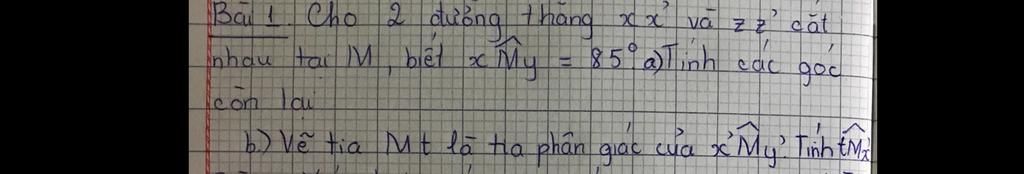 Bài 1 Cho 2 đường thẳng xx' và zz' cắt
nhau tại M, biết xM̂y = 85° a) Tính các góc
còn lại
b.) Vẽ tia Mt là tia phân giác của x'M̂y'. Tính tM̂x'